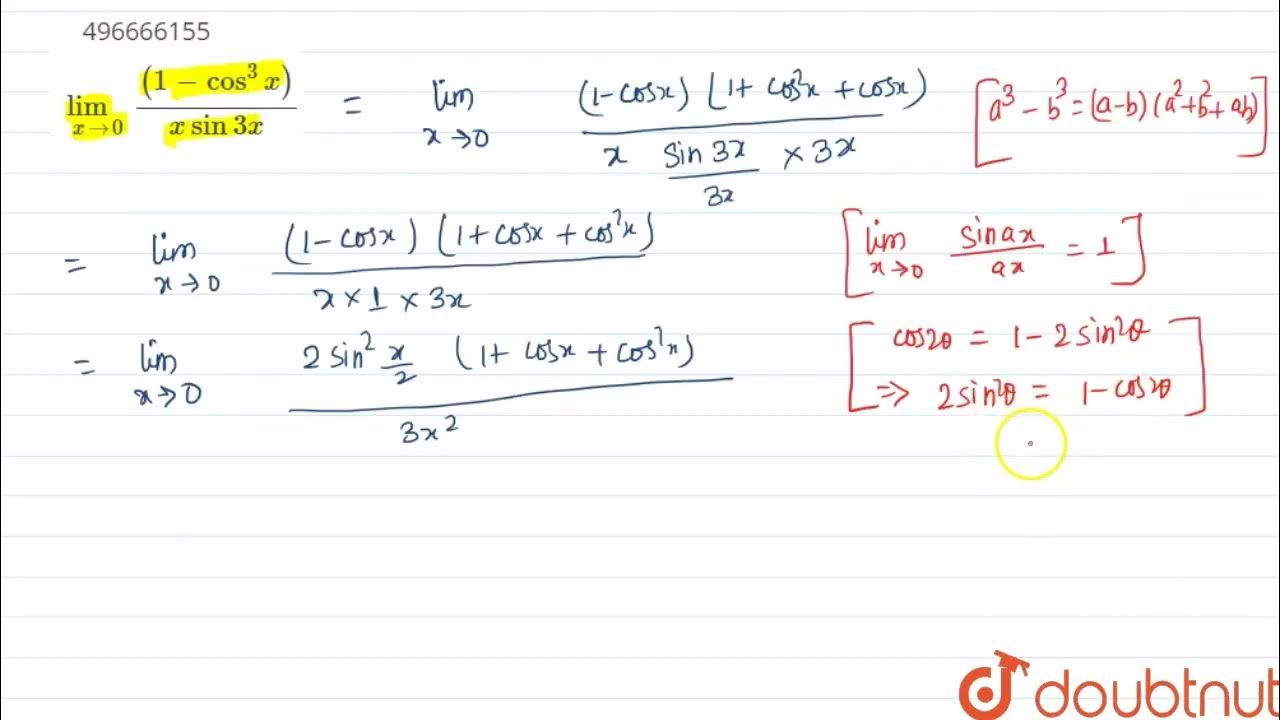 496666155
lim x→0 (1 − cos³ x) / (x sin 3x) = lim x→0 (1-cosx) (1+ cos²x + cosx) / (x (sin 3x / 3x) × 3x) [a³ - b³ = (a-b) (a²+b²+ ab)]
= lim x→0 (1-cosx) (1+cosx + cos²x) / (x × 1 × 3x) [lim x→0 sin ax / ax = 1]
= lim x→0 2 sin² x/2 (1+ cosx + cos²x) / 3x² [cos2θ = 1 - 2 sin²θ
⇒ 2 sin²θ = 1 - cos2θ]
doubtnut